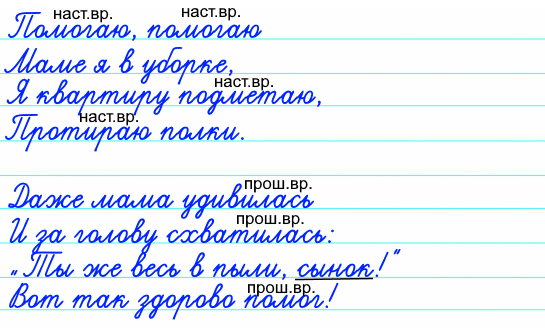 наст.вр. наст.вр.
Помогаю, помогаю
Маме я в уборке,
наст.вр.
Я квартиру подметаю,
наст.вр.
Протираю полки.
прош.вр.
Даже мама удивилась
прош.вр.
И за голову схватилась:
„Ты же весь в пыли, сынок!“
прош.вр.
Вот так здорово помог!